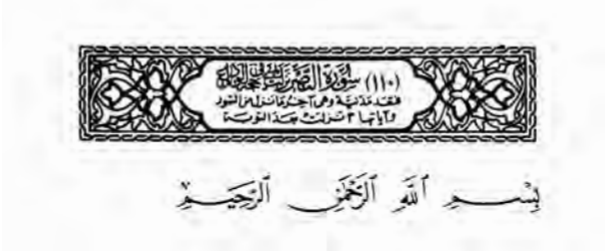 (١١٠) سُورَةُ النَّصْرِ نزلت بمنى في حجة الوداع
فتعد مدنية وهى آخر ما نزل من السور
وآياتها ٣ نزلت بعد التوبة
بِسْمِ ٱللَّهِ ٱلرَّحْمَٰنِ ٱلرَّحِيمِ